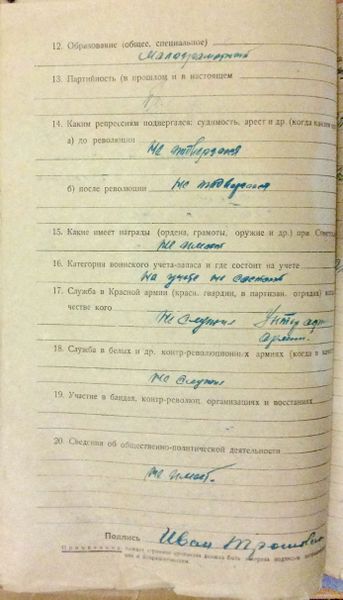 12. Образование (общее, специальное)
Малограмотный
13. Партийность (в прошлом и в настоящем
14. Каким репрессиям подвергался: судимость, арест и др. (когда каким
а) до революции не подвергался
б) после революции не подвергался
15. Какие имеет награды (ордена, грамоты, оружие и др.) при
не имеет
16. Категория воинского учета-запаса и где состоит на учете
на учете не состоит
17. Служба в Красной армии (красн. гвардии, в партизан. отрядах)
честве кого
не служил
18. Служба в белых и др. контр-революционных армиях (когда в
не служил
19. Участие в бандах, контр-революц. организациях и восстаниях
20. Сведения об общественно-политической деятельности
не имеет.
Подпись Иван
Примечание